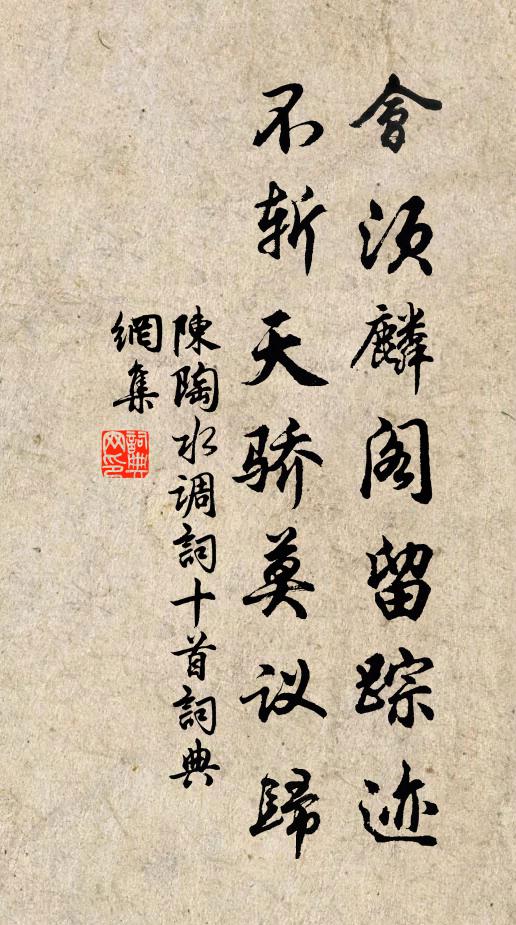 會须麟阁留踪迹
不斩天骄莫议歸
陳陶水调詞十首詞典
網集
詞典网印